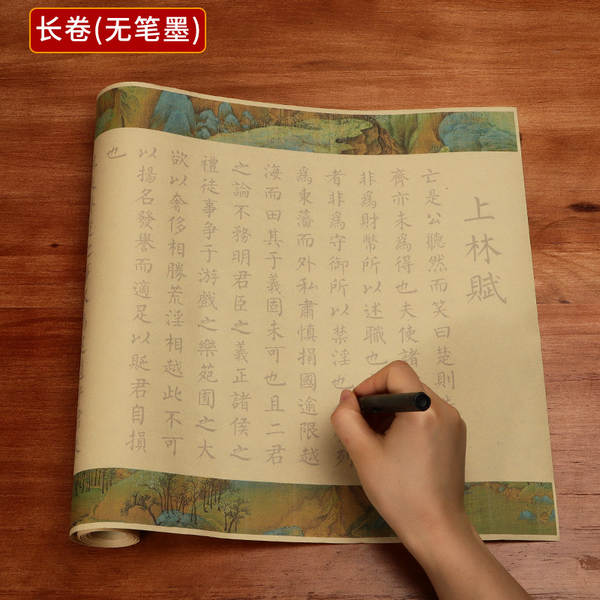 长卷(无笔墨)
上林賦
亡是公聽然而笑曰楚則
齊亦未爲得也夫使諸
非爲財幣所以述職也
者非爲守御所以禁淫也列
爲東藩而外私肅慎捐國逾限越
海而田其于義固未可也且二君
之論不務明君臣之義正諸侯之
禮徒事爭于游戲之樂苑囿之大
欲以奢侈相勝荒淫相越此不可
以揚名發譽而適足以貶君自損
也